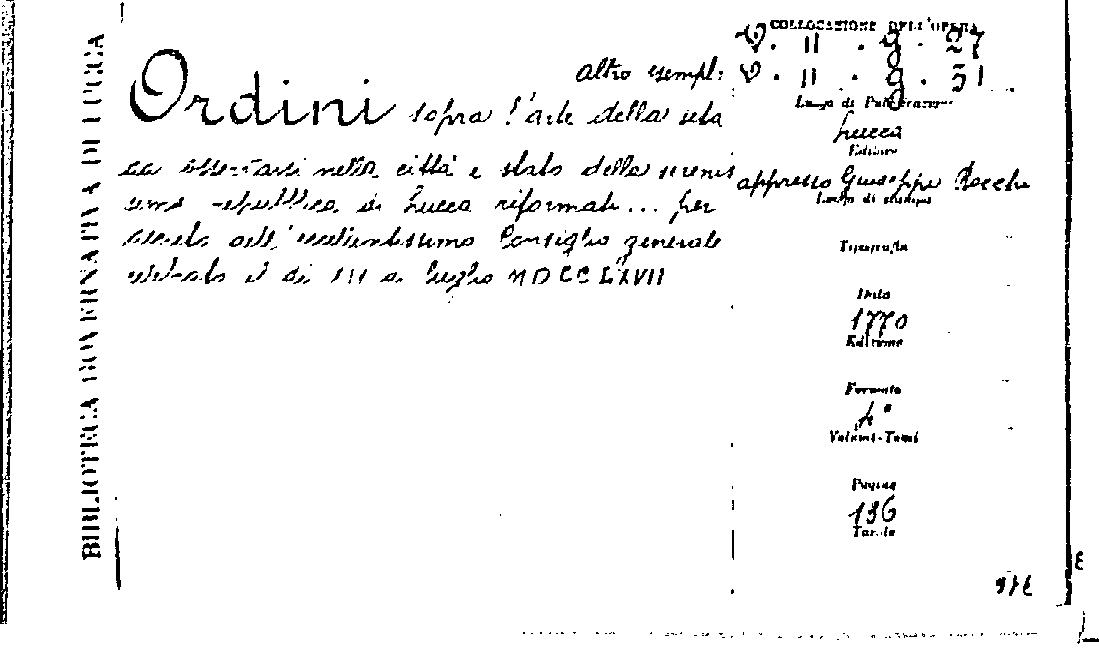 BIBLIOTECA GOVERNATIVA DI LUCCA
COLLOCAZIONE DELL'OPERA
V. II. g. 27
Altro esempl: V. II. g. 31
Ordini sopra l'arte della seta
da osservarsi nella città e stato della serenis
sima repubblica di Lucca riformati... per
decreto dell'eccellentissimo Consiglio generale
celebrato il dì III di luglio MDCCLXVII
Luogo di Pubblicazione
Lucca
Editore
appresso Giuseppe Rocchi
Luogo di stampa
Tipografia
Data
1770
Edizione
Formato
4°
Volumi-Tomi
Pagine
136
Tavole